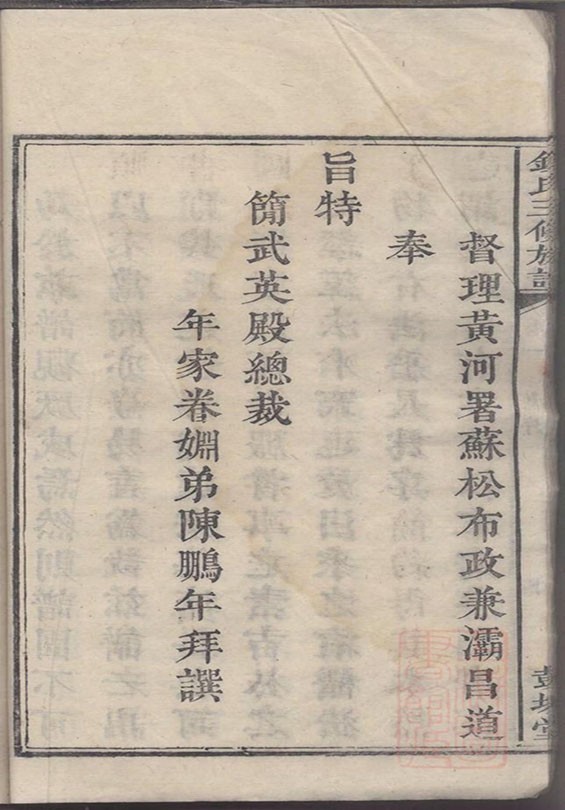 督理黃河署蘇松布政兼灞昌道
奉
旨特
簡武英殿總裁
年家眷婣弟陳鵬年拜譔
氏三修族譜
堂